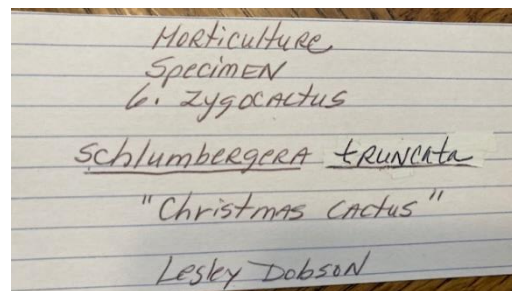 Horticulture
Specimen
6. Zygocactus
Schlumbergera truncata
"Christmas Cactus"
Lesley Dobson